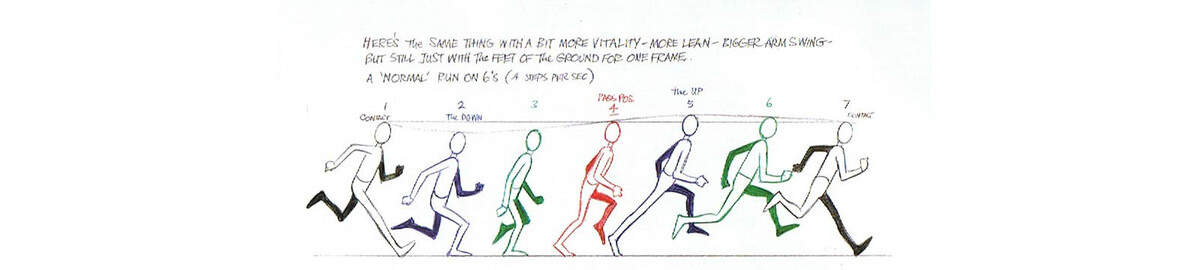 HERE'S THE SAME THING WITH A BIT MORE VITALITY - MORE LEAN - BIGGER ARM SWING -
BUT STILL JUST WITH THE FEET OF THE GROUND FOR ONE FRAME.
A 'NORMAL' RUN ON 6'S (4 STEPS PER SEC)
1 2 3 PASS POS. 4 THE UP 5 6 7
CONTACT THE DOWN CONTACT